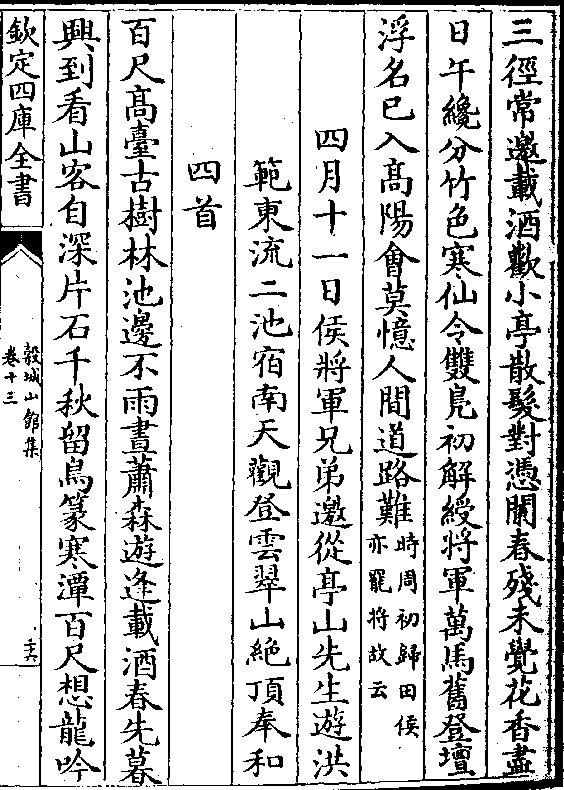 三徑常邀載酒歡小亭散髮對憑闌春殘未覺花香盡
日午纔分竹色寒仙令雙鳧初解綬將軍萬馬舊登壇
浮名已入高陽會莫憶人間道路難時周初歸田侯
亦罷將故云
四月十一日侯將軍兄弟邀從亭山先生遊洪
範東流二池宿南天觀登雲翠山絶頂奉和
四首
百尺髙臺古樹林池邊不雨晝蕭森遊逢載酒春先暮
興到看山客自深片石千秋留鳥篆寒潭百尺想龍吟
欽定四庫全書
榖城山館集
卷十三
二六